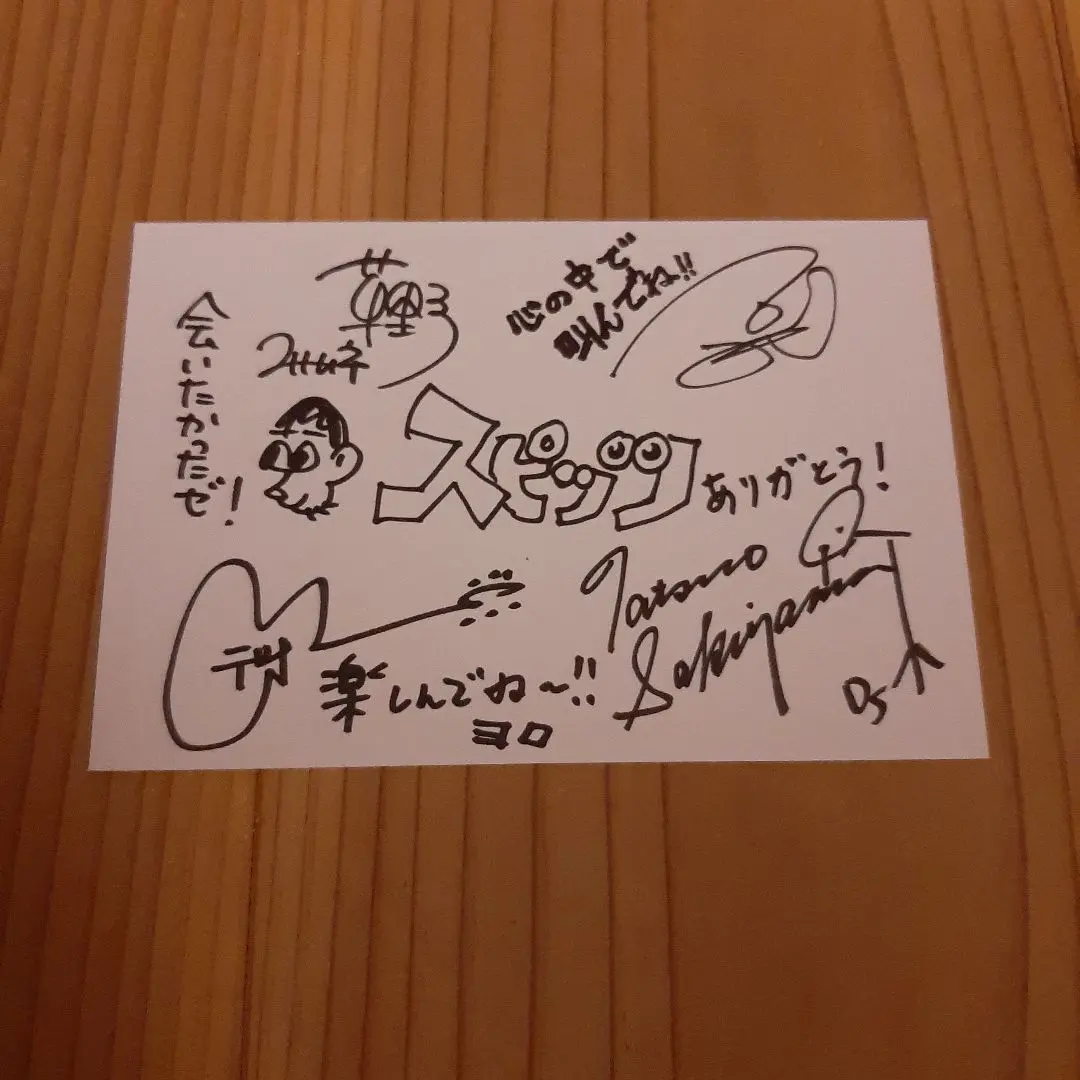 会いたかったぜ!
草野
マサムネ
心の中で
叫んでね!!
スピッツ
ありがとう!
テツヤ
楽しんでね〜!!
ヨロ
Tatsuo
Sakiyama
Ds